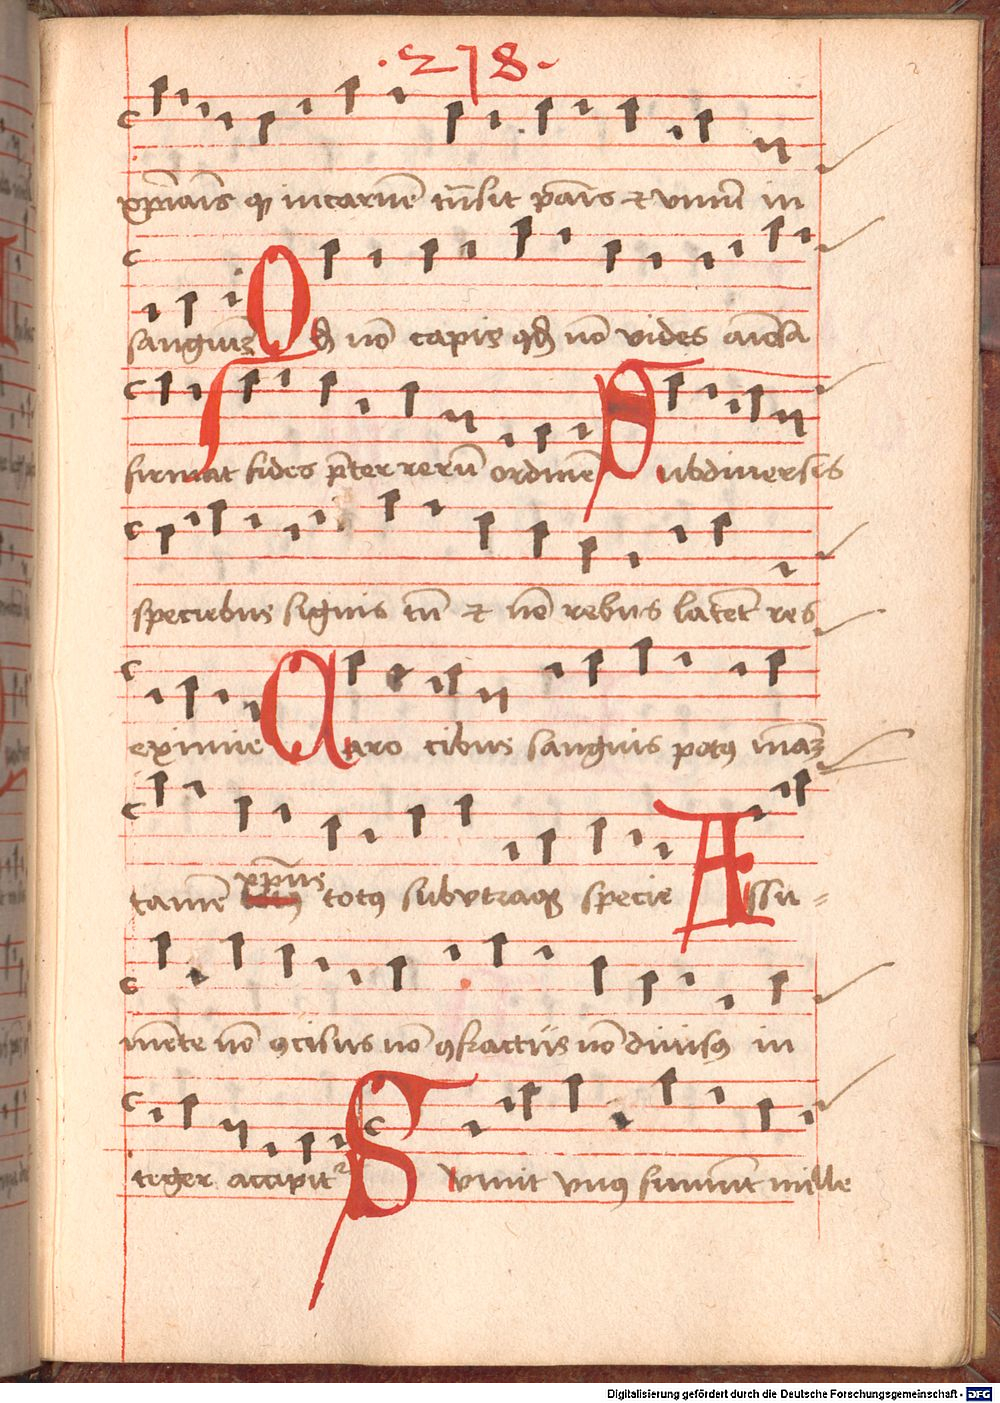 ·278·
xp̄ianis qͥ in carnē trn̄sit panis et vinū in
sanguinē Qd̄ non̄ capis qd̄ nō vides aīosa
firmat fides p̄ter rerū ordinē Sub diuersis
speciebus signis tm̄ et nō rebus latēt res
eximie Caro cibus sanguis potꝰ manꝫ
tamē xp̄us totꝰ sub vtraqꝫ specie A ssu-
mēte nō ꝯcisus nō ꝯfractus nō diuisꝰ in
teger accipitᷣ Sumit vnꝰ sumūt mille
Digitalisierung gefördert durch die Deutsche Forschungsgemeinschaft - DFG